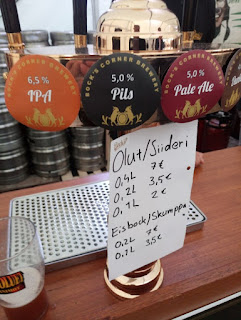 ROCK'S CORNER BREWERY
6,5 %
IPA
ROCK'S CORNER BREWERY
5,0 %
Pils
ROCK'S CORNER BREWERY
5,0 %
Pale Ale
Olut/Siideri
0,4L 7€
0,2L 3,5€
0,1L 2€
Eisbock/Skumppa
0,2L 7€
0,1L 3,5€